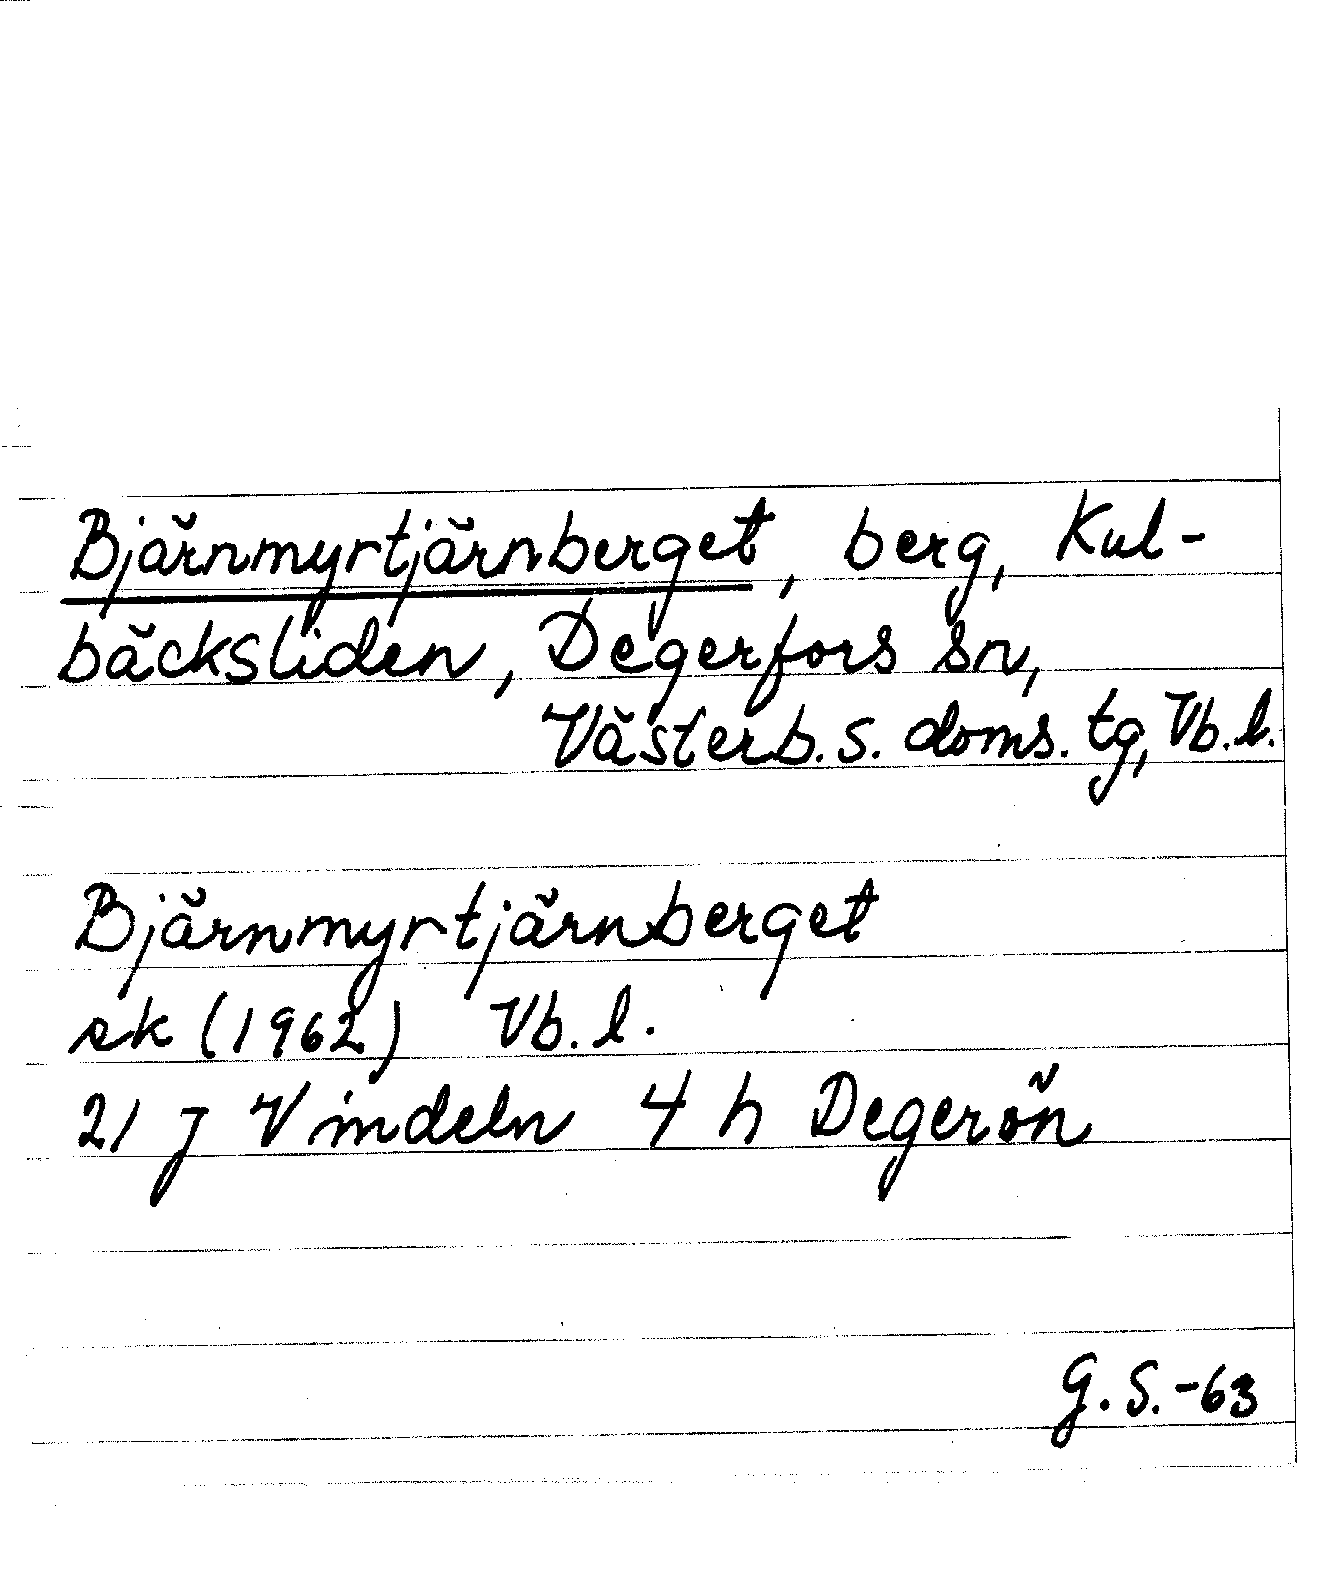 Bjärnmyrtjärnberget, berg, Kul-
bäcksliden, Degerfors sn,
Västerb. s. doms. tg, Vb. l.
Bjärnmyrtjärnberget
ek (1962) Vb. l.
21 J Vindeln 4 h Degerön
G. S. -63